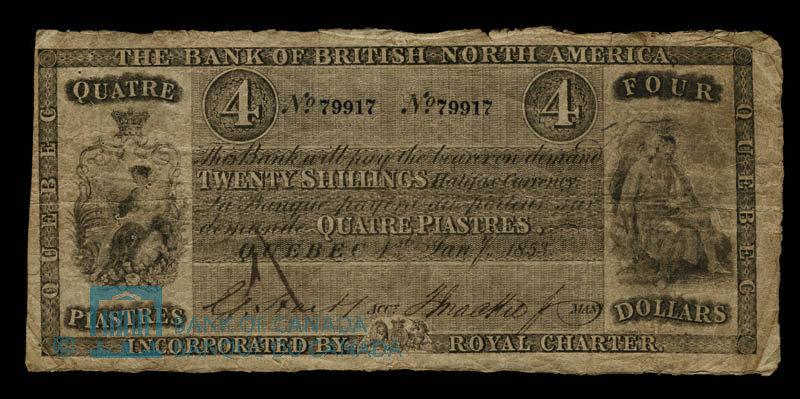 THE BANK OF BRITISH NORTH AMERICA.
QUATRE
FOUR
4 No 79917 No 79917 4
This Bank will pay the bearer on demand
TWENTY SHILLINGS Halifax Currency.
La Banque payera au porteur sur
demande QUATRE PIASTRES.
QUEBEC 1st Jany. 1853
ACCT. MANR
PIASTRES
DOLLARS
INCORPORATED BY ROYAL CHARTER.
QUEBEC
QUEBEC
©
BANK OF CANADA
BANQUE DU CANADA